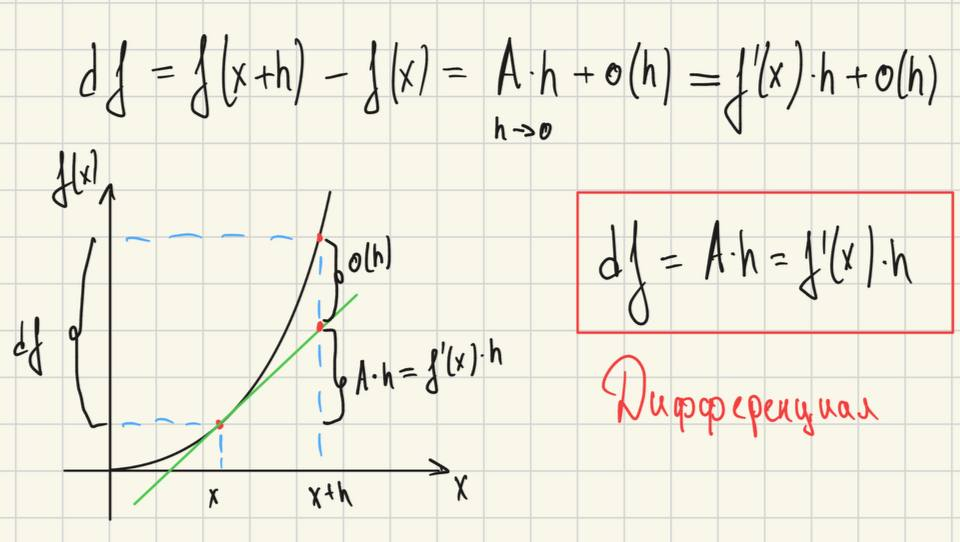 df = f(x+h) - f(x) = A·h + o(h) = f'(x)·h + o(h)
h→0
f(x)
o(h)
df
A·h = f'(x)·h
x
x+h
x
df = A·h = f'(x)·h
Дифференциал